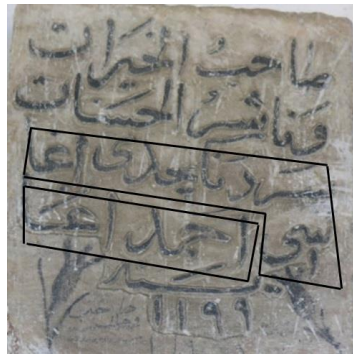 صاحب الخيرات
وناشر الحسنات
سردن كچدى اغا
سى احمد اغا
سنه
١١٩٩